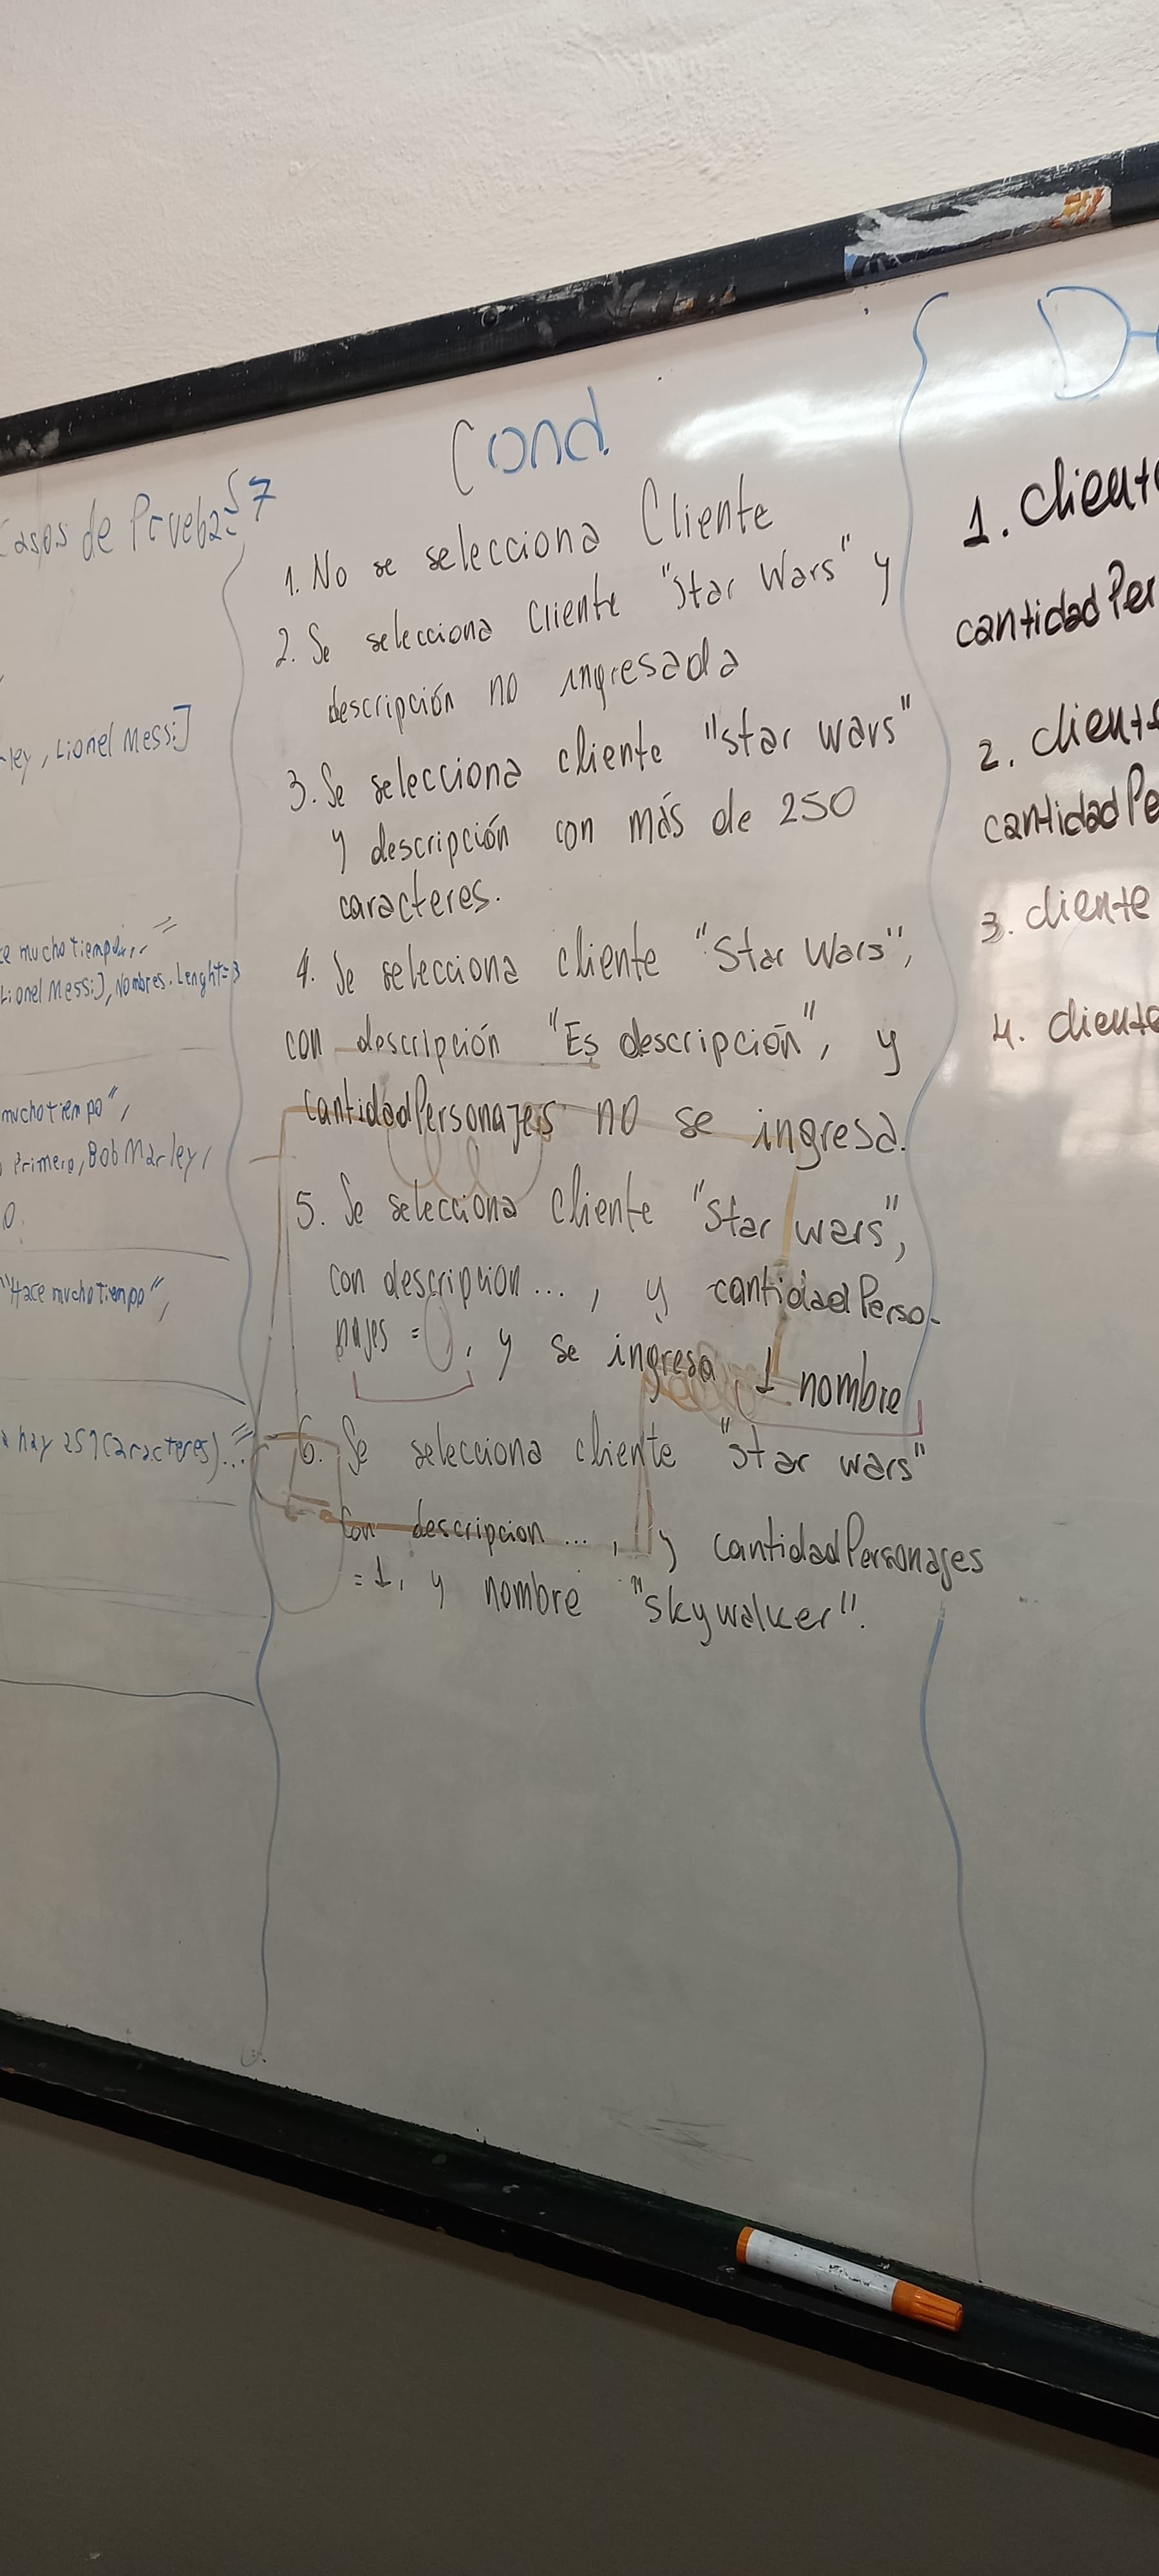 Casos de Prueba: 7
ley, Lionel Messi]
mucho tiempo..."
Lionel Messi], Nombres.Lenght=3
mucho tiempo",
Primero, Bob Marley,
0.
"Hace mucho tiempo",
hay 251 caracteres)..."
Cond.
1. No se selecciona Cliente
2. Se selecciona Cliente "Star Wars" y
descripción no ingresada
3. Se selecciona cliente "star wars"
y descripción con más de 250
caracteres.
4. Se selecciona cliente "Star Wars",
con descripción "Es descripción", y
cantidadPersonajes no se ingresa.
5. Se selecciona cliente "Star wars",
con descripcion..., y cantidadPerso-
najes = 0, y se ingresa 1 nombre
6. Se selecciona cliente "star wars"
Con descripcion..., y cantidadPersonajes
=1, y nombre "skywalker".
D
1. cliente
cantidadPer
2. cliente
cantidadPe
3. cliente
4. cliente